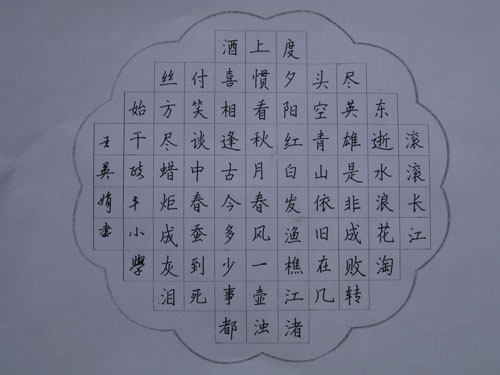 滚滚长江
东逝水浪花淘
尽英雄是非成败转
头空青山依旧在几
度夕阳红白发渔樵江渚
上惯看秋月春风一壶浊
酒喜相逢古今多少事都
付笑谈中春蚕到死
丝方尽蜡炬成灰泪
始干小學
王英娟書